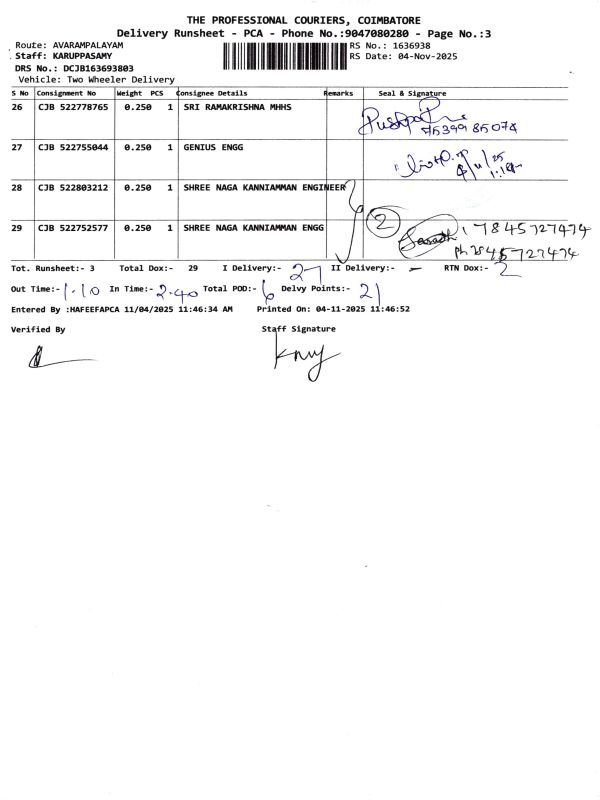 THE PROFESSIONAL COURIERS, COIMBATORE
Delivery Runsheet - PCA - Phone No.:9047080280 - Page No.:3
Route: AVARAMPALAYAM RS No.: 1636938
Staff: KARUPPASAMY RS Date: 04-Nov-2025
DRS No.: DCJB163693803
Vehicle: Two Wheeler Delivery
S No Consignment No Weight PCS Consignee Details Remarks Seal & Signature
26 CJB 522778765 0.250 1 SRI RAMAKRISHNA MHHS
7539985074
27 CJB 522755044 0.250 1 GENIUS ENGG
28 CJB 522803212 0.250 1 SHREE NAGA KANNIAMMAN ENGINEER
2
29 CJB 522752577 0.250 1 SHREE NAGA KANNIAMMAN ENGG 7845727474
Ph 7845727474
Tot. Runsheet:- 3 Total Dox:- 29 I Delivery:- 27 II Delivery:- - RTN Dox:- 2
Out Time:- 1.10 In Time:- 2.40 Total POD:- 6 Delvy Points:- 21
Entered By :HAFEEFAPCA 11/04/2025 11:46:34 AM Printed On: 04-11-2025 11:46:52
Verified By Staff Signature